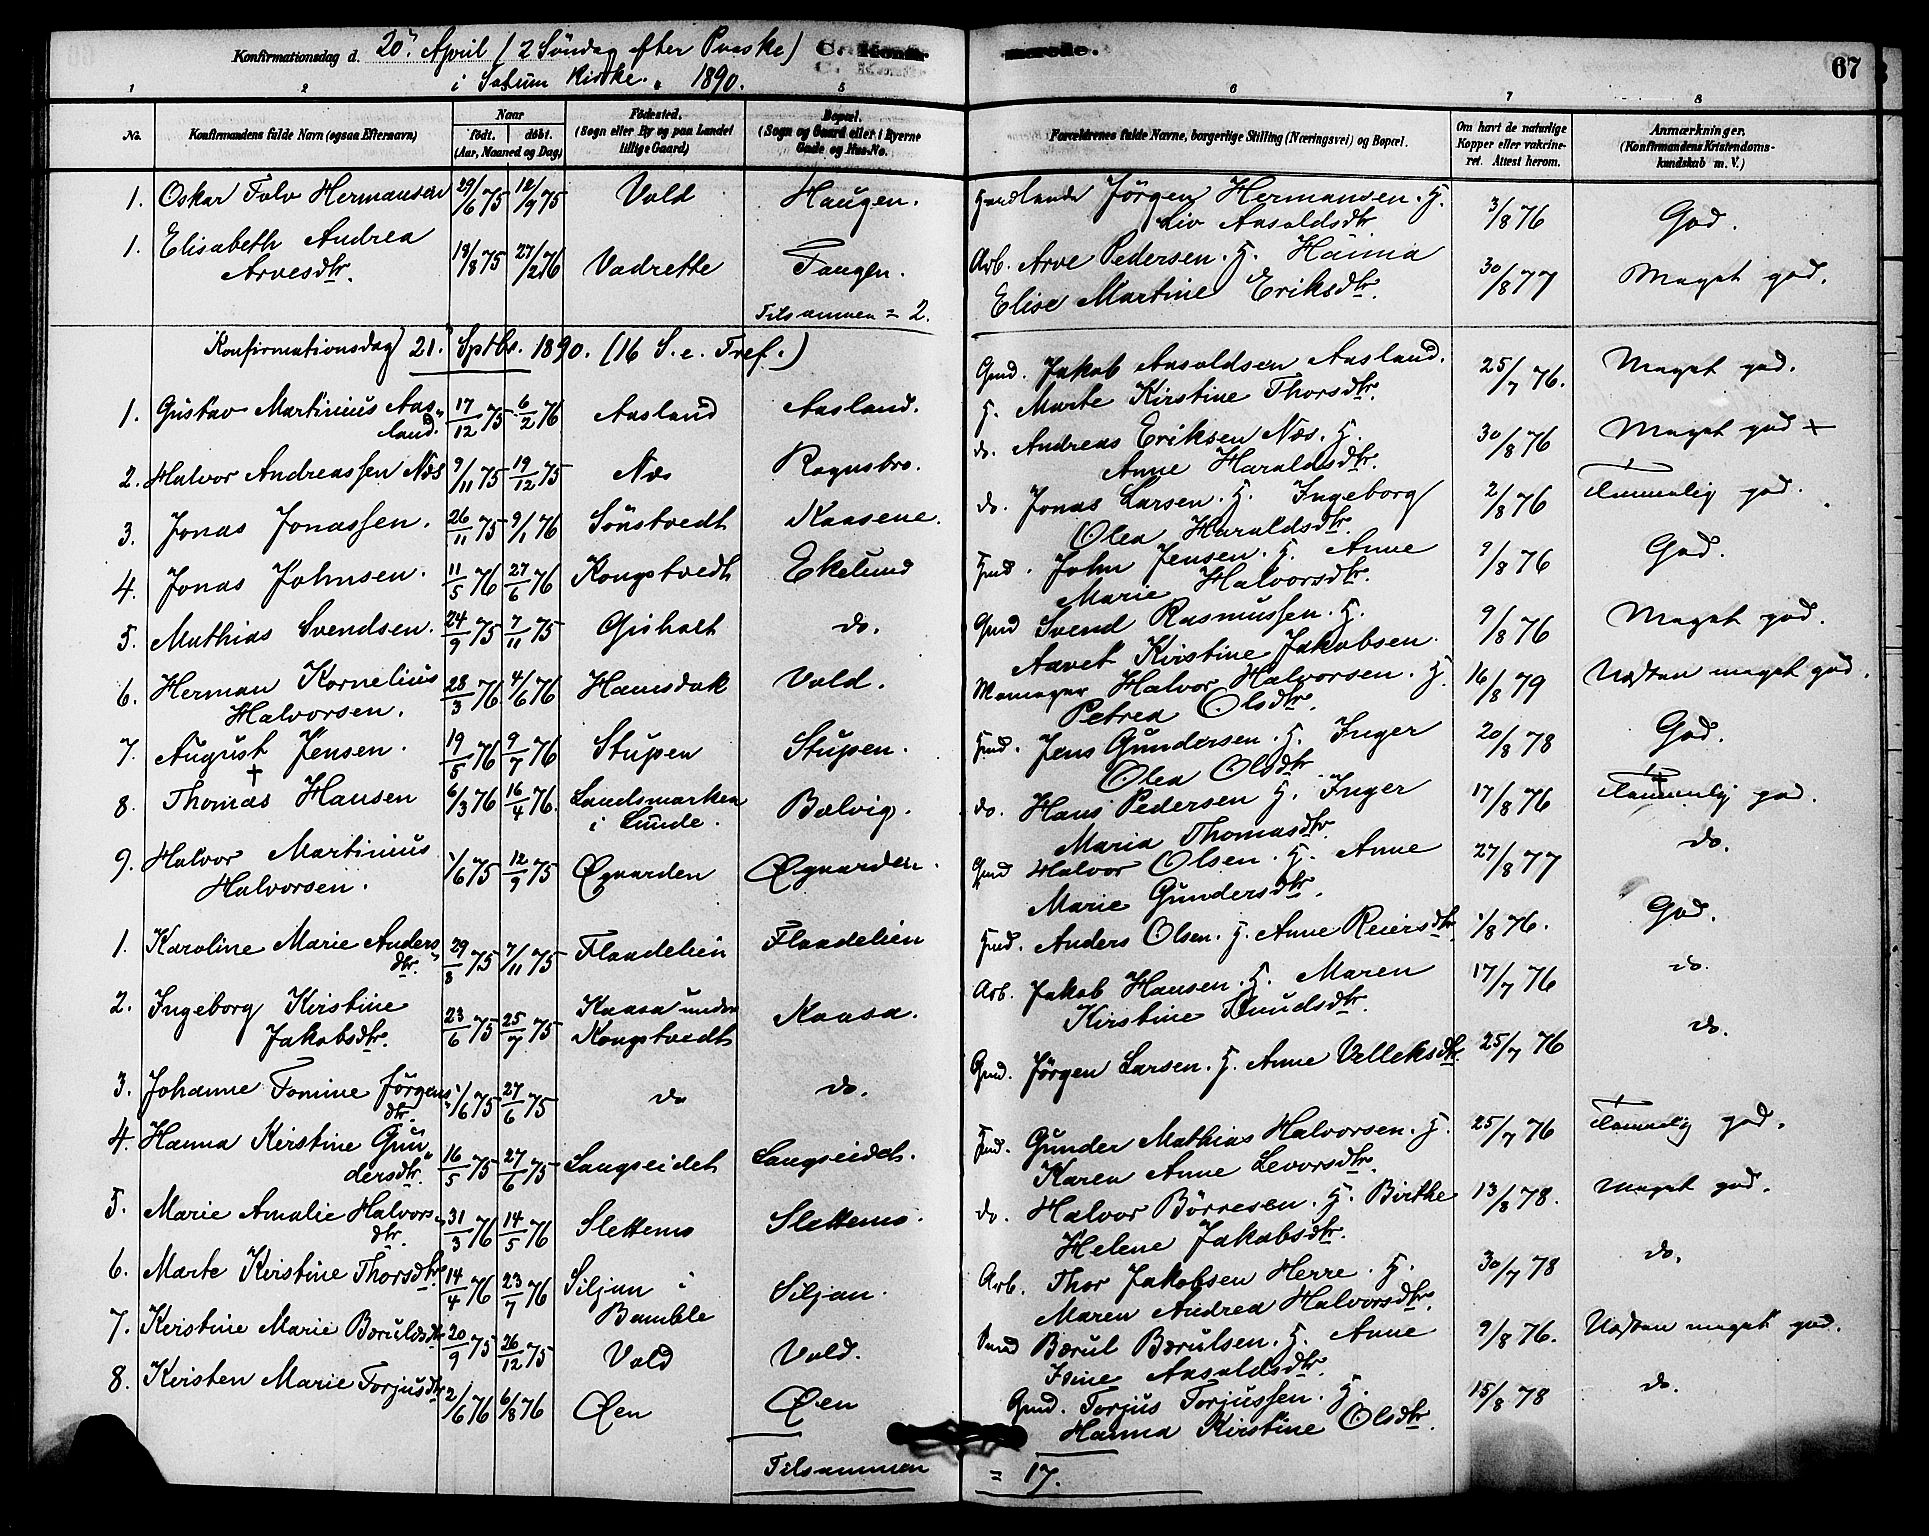 Konfirmationsdag d. 20de April (2 Söndag efter Paaske)
i Kirke. 1890.
67
1 2 5 6 7 8
No. Konfirmandens fulde Navn (ogsaa Efternavn) Naar født. døbt. (Aar, Maaned og Dag) Fødested. (Sogn eller By og paa Landet tillige Gaard) Bopæl. (Sogn og Gaard eller i Byerne Gade og Hus-No. Forældrenes fulde Navne, borgerlige Stilling (Næringsvei) og Bopæl. Om havt de naturlige Kopper eller vakcineret. Attest herom. Anmærkninger. (Konfirmandens Kristendomskundskab m. V.)
1. Oskar Hermansen 29/6 75 12/9 75 Vold Haugen. Jörgen Hermansen. H. 3/8 76 God.
Liv Aasoldsdtr
1. Elisabeth Andrea 18/8 75 27/2 76 Vadrette Tangen. Arb. Arve Pedersen. H. Hanna 30/8 77 Meget god.
Arvesdtr. Elise Martine Eriksdtr.
Tilsammen = 2.
Konfirmationsdag 21. Sptbr. 1890. (16 S. e. Tref.)
1. Gustav Martinius Aas- 17/12 75 6/2 76 Aasland Aasland. Gmd. Jakob Aasoldsen Aasland. 25/7 76. Meget god.
land. H. Marte Kirstine Thorsdtr.
2. Halvor Andreassen Næs 9/11 75 19/12 75 Næs Rognsbro. do. Andreas Eriksen Næs. H. 30/8 76 Meget god +
Anne Haraldsdtr.
3. Jonas Jonassen. 26/11 75 9/1 76 Sönstvedt Kaasene. do. Jonas Larsen. H. Ingeborg 2/8 76 Temmelig god.
Olea Haraldsdtr.
4. Jonas Johnsen. 11/5 76 27/6 76 Kongstvedt Ekelund Hmd. John Jensen. H. Anne 9/8 76 God.
Marie Halvorsdtr.
5. Mathias Svendsen. 24/9 75 7/11 75 Gisholt do. Gmd Svend Rasmussen. H. 9/8 76 Meget god.
Aavet Kirstine Jakobsen.
6. Herman Kornelius 28/3 76 4/6 76 Hamsdok Vold. Halvor Halvorsen. H. 16/8 79 Næsten meget god.
Halvorsen. Petrea Olsdtr.
7. August Jensen. 19/5 76 9/7 76 Stupen Stupen. Hmd. Jens Gundersen. H. Inger 20/8 78 God.
Olea Olsdtr
8. Thomas Hansen 6/3 76 16/4 76. Landsmarken Bælvig. do. Hans Pedersen H. Inger 17/8 76 Temmelig god.
i Lunde. Maria Thomasdtr.
9. Halvor Martinius 1/6 75 12/9 75 Øgaarden Øgaarden. Gmd Halvor Olsen. H. Anne 27/8 77 do.
Halvorsen. Marie Gundersdtr.
1. Karoline Marie Anders- 29/8 75 7/11 75 Flaadelien Flaadelien Hmd. Anders Olsen. H. Anne Reiersdtr 1/8 76. God.
dtr.
2. Ingeborg Kirstine 23/6 75 25/7 75 Kaasa under Kaasa. Arb. Jakob Hansen. H. Maren 17/7 76 do.
Jakobsdtr. Kongstvedt Kirstine Knudsdtr.
3. Johanne Tomine Jörgens- 1/6 75 27/6 75 do do. Gmd. Jörgen Larsen. H. Anne Velleksdtr. 25/7 76 do.
dtr.
4. Hanna Kirstine Gun- 16/5 75 27/6 75 Langseidet Langseidet. Hmd. Gunder Mathias Halvorsen. H. 25/7 76 Temmelig god.
dersdtr. Karen Anne Levorsdtr.
5. Marie Amalie Halvors- 31/3 76 14/5 76 Slettemo Slettemo. do. Halvor Börresen. H. Birthe 13/8 78. Meget god.
dtr. Helene Jakobsdtr.
6. Marte Kirstine Thorsdtr 14/4 76 23/7 76 Siljan i Siljan. Arb. Thor Jakobsen Herre. H. 30/7 78 do.
Bamble Maren Andrea Halvorsdtr.
7. Kirstine Marie Børulsdtr 20/9 75 26/12 75 Vold Vold. Børul Børulsen. H. Anne 9/8 76. Næsten meget god.
Isine Aasoldsdtr.
8. Kirsten Marie Torjusdtr 2/6 76 6/8 76 Øen Øen Gmd. Torjus Torjussen. H. 15/8 78 do.
Hanna Kirstine Olsdtr.
Tilsammen = 17.